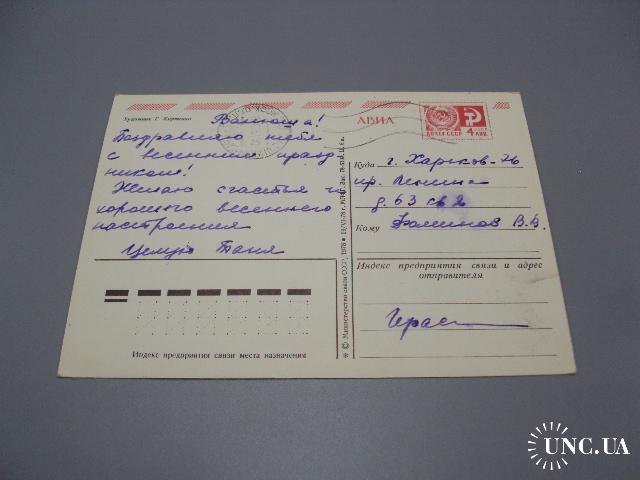 Художник Г. Куртенко
Ванюша!
Поздравляю тебя
с весенним празд
ником!
Желаю счастья и
хорошего весеннего
настроения
Целую Таня
Индекс предприятия связи места назначения
© Министерство связи СССР, 1978
АВИА
ПОЧТА СССР
4 КОП.
Куда г. Харьков-76
пр. Ленина
д. 63 кв 2
Кому В.В.
Индекс предприятия связи и адрес
отправителя
UNC.UA